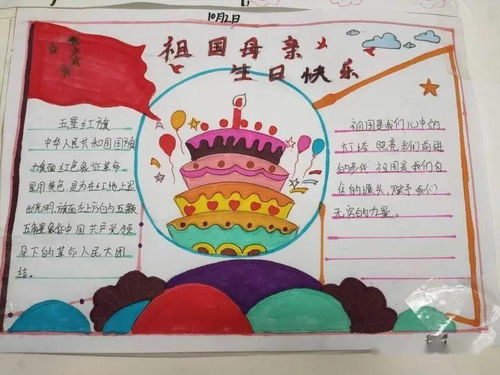 10月2日
祖国母亲
生日快乐
五星红旗
中华人民共和国国旗
旗面红色象征革命。
星用黄色,是为在红地上显
出光明,旗面左上方向与五颗
五角星象征中国共产党领
导下的革命人民大团
结。
祖国是我们心中的
灯塔 照亮我们前进
祖国是我们自
信的源头,赋予我们
无穷的力量。